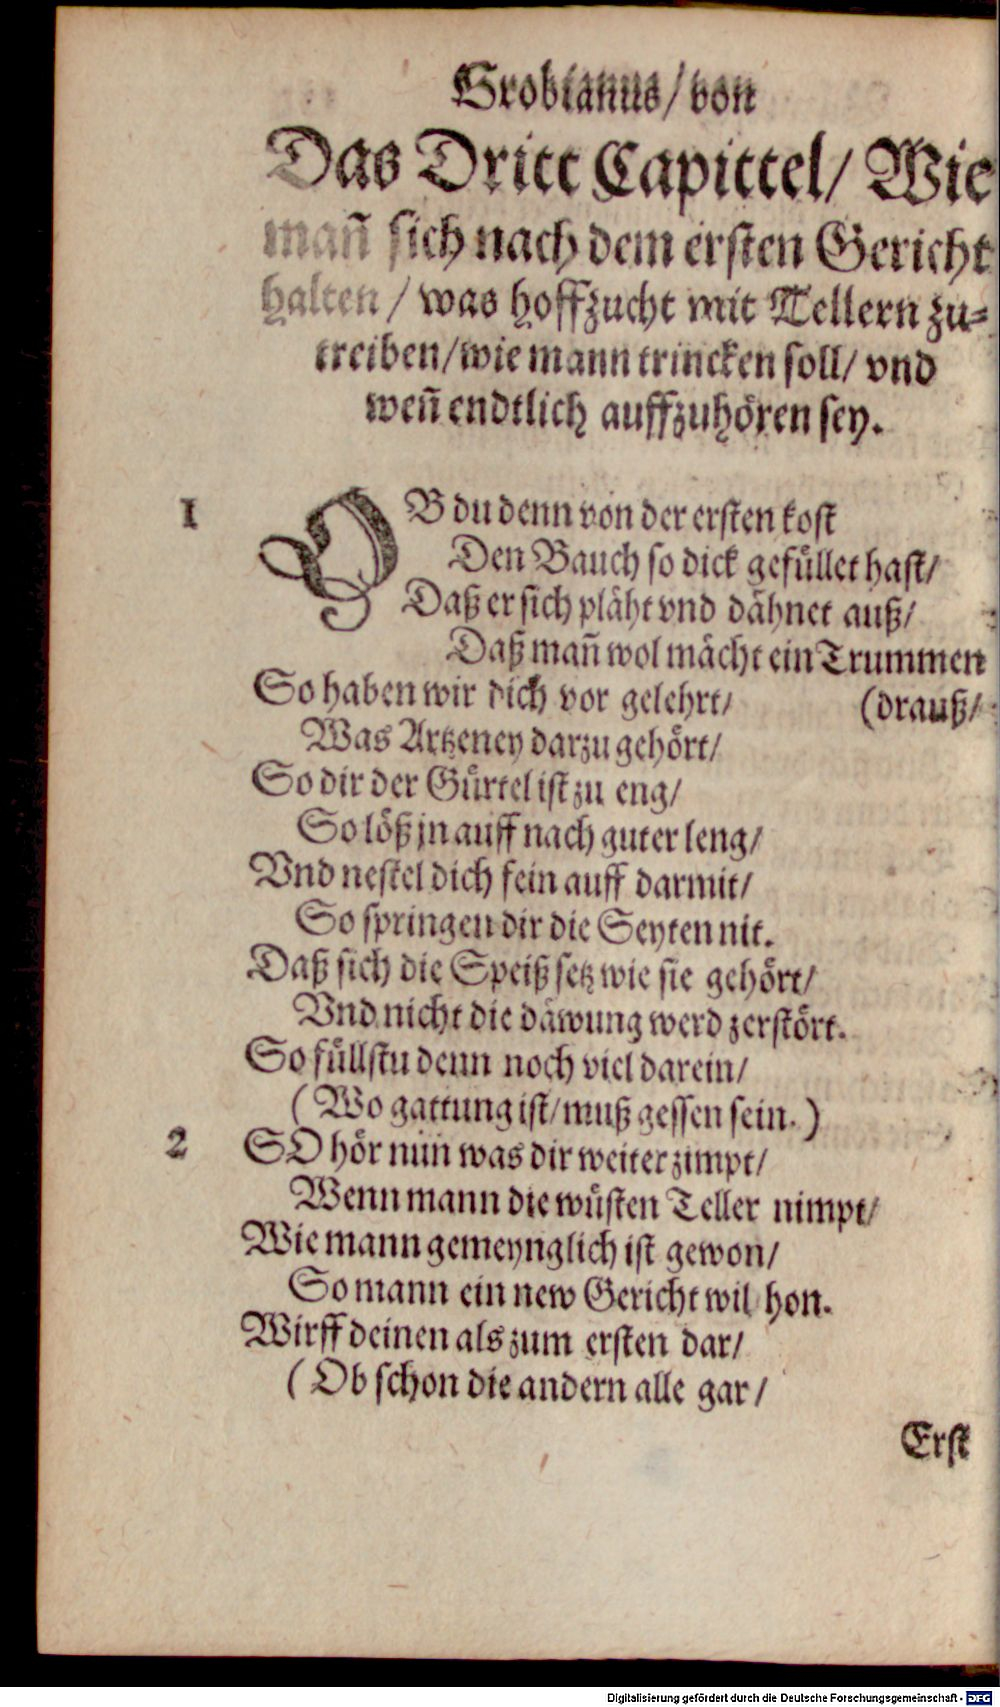 Grobianus/ von
Das Dritt Capittel/ Wie
mañ sich nach dem ersten Gericht
halten / was hoffzucht mit Tellern zu-
treiben/wie mann trincken soll/ vnd
weñ endtlich auffzuhören sey.
1 OB du denn von der ersten kost
Den Bauch so dick gefüllet hast/
Daß er sich pläht vnd dähnet auß/
Daß mañ wol mächt ein Trummen
So haben wir dich vor gelehrt/ (drauß/
Was Artzeney darzu gehört/
So dir der Gürtel ist zu eng/
So löß jn auff nach guter leng/
Vnd nestel dich fein auff darmit/
So springen dir die Seyten nit.
Daß sich die Speiß setz wie sie gehört/
Vnd nicht die däwung werd zerstört.
So füllstu denn noch viel darein/
(Wo gattung ist/muß gessen sein.)
2 SO hör nun was dir weiter zimpt/
Wenn mann die wüsten Teller nimpt/
Wie mann gemeynglich ist gewon/
So mann ein new Gericht wil hon.
Wirff deinen als zum ersten dar/
(Ob schon die andern alle gar/
Erst
Digitalisierung gefördert durch die Deutsche Forschungsgemeinschaft - DFG